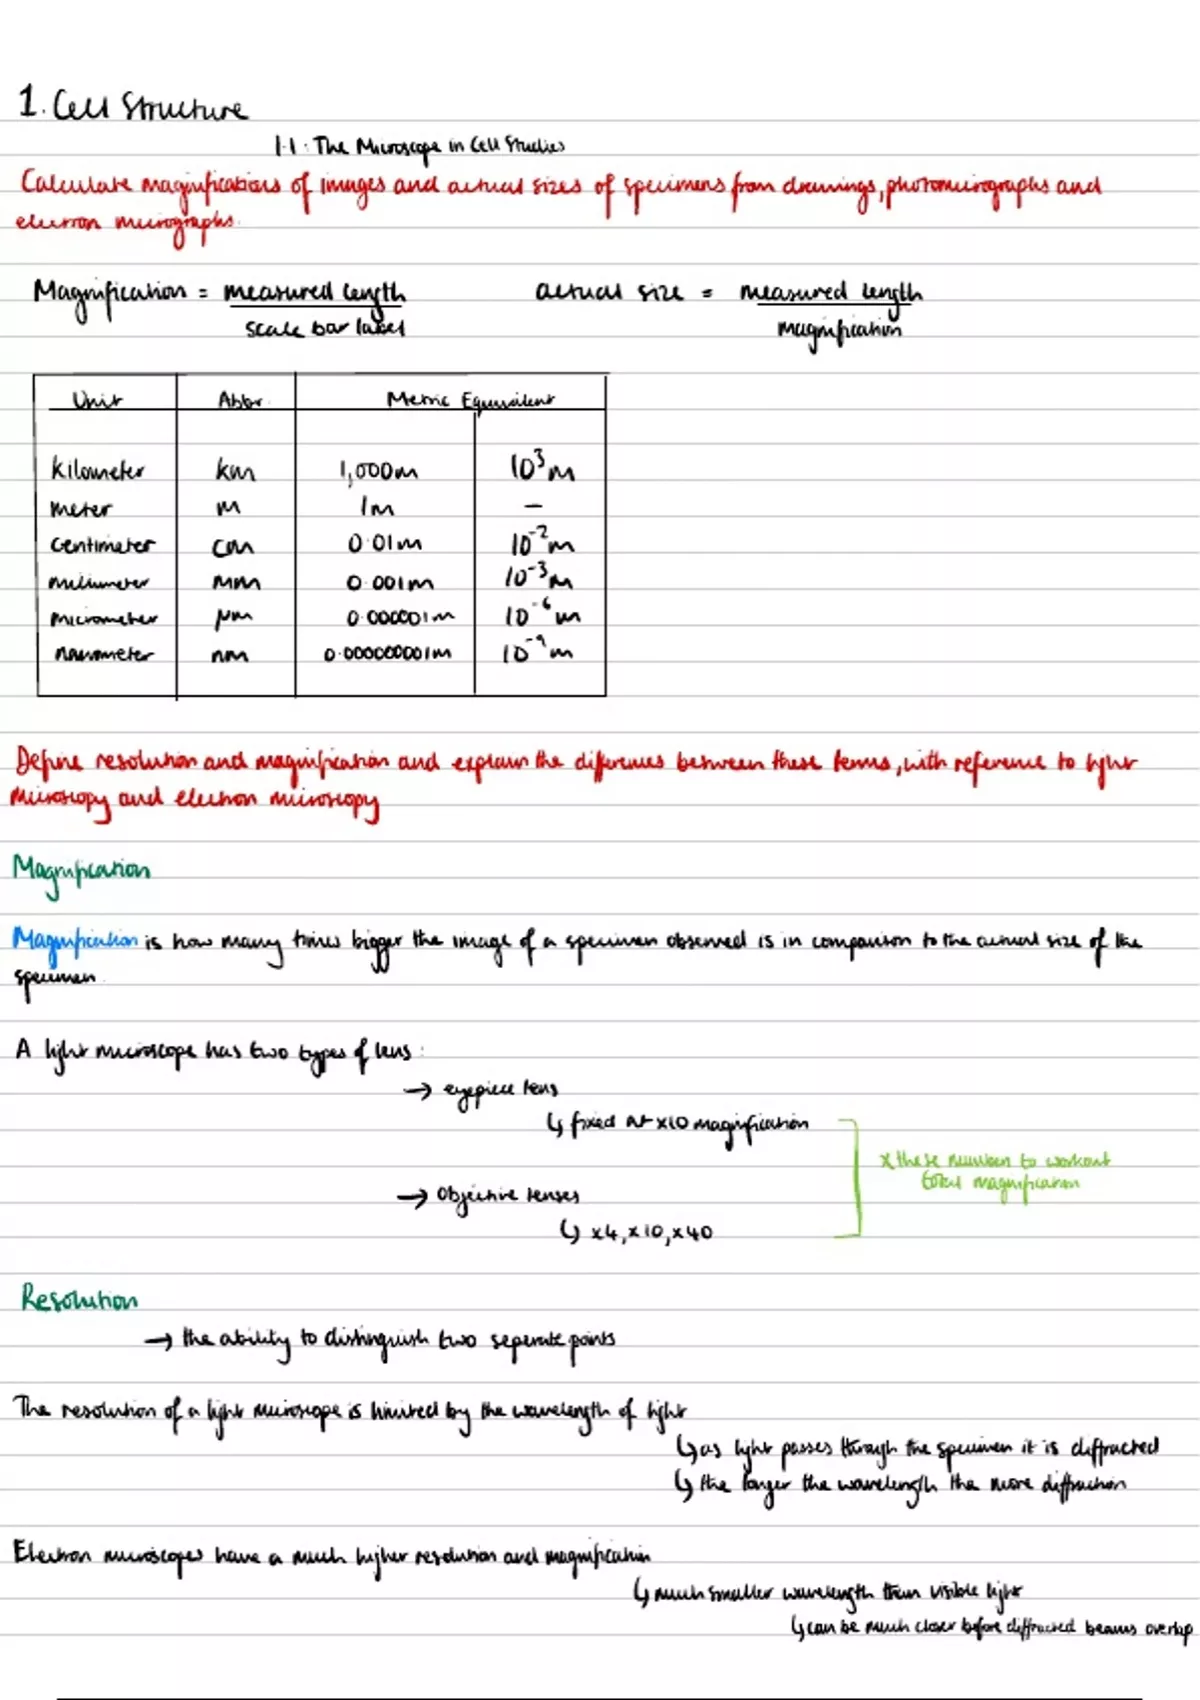 1. Cell Structure
1.1: The Microscope in Cell Studies
Calculate magnifications of images and actual sizes of specimens from drawings, photomicrographs and
electron micrographs.
Magnification = measured length actual size = measured length
scale bar label magnification
Unit Abbr. Metric Equivalent
Kilometer km 1,000m 10³m
meter m 1m –
Centimeter cm 0.01m 10⁻²m
millimeter mm 0.001m 10⁻³m
micrometer µm 0.000001m 10⁻⁶m
nanometer nm 0.000000001m 10⁻⁹m
Define resolution and magnification and explain the differences between these terms, with reference to light
microscopy and electron microscopy
Magnification
Magnification is how many times bigger the image of a specimen observed is in comparison to the actual size of the
specimen.
A light microscope has two types of lens:
→ eyepiece lens
↳ fixed at x10 magnification
x these numbers to workout
total magnification
→ Objective lenses
↳ x4, x10, x40
Resolution
→ the ability to distinguish two seperate points
The resolution of a light microscope is limited by the wavelength of light
↳ as light passes through the specimen it is diffracted
↳ the longer the wavelength the more diffraction
Electron microscopes have a much higher resolution and magnification
↳ much smaller wavelength than visible light
↳ can be much closer before diffracted beams overlap